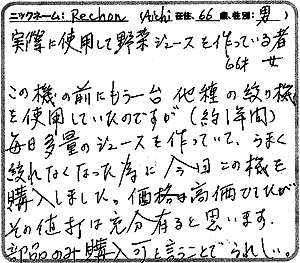 ニックネーム: Rechon (Aichi 在住、66 歳、性別: 男 )
実際に使用して野菜ジュースを作っている者
66才 女
この機の前にもう一台 他種の絞り機
を使用していたのですが(約1年間)
毎日多量のジュースを作っていて、うまく
絞れなくなった為に今回この機を
購入しました。価格は高価でしたが
その値打は充分有ると思います。
部品のみ購入可と言うことでうれしい。